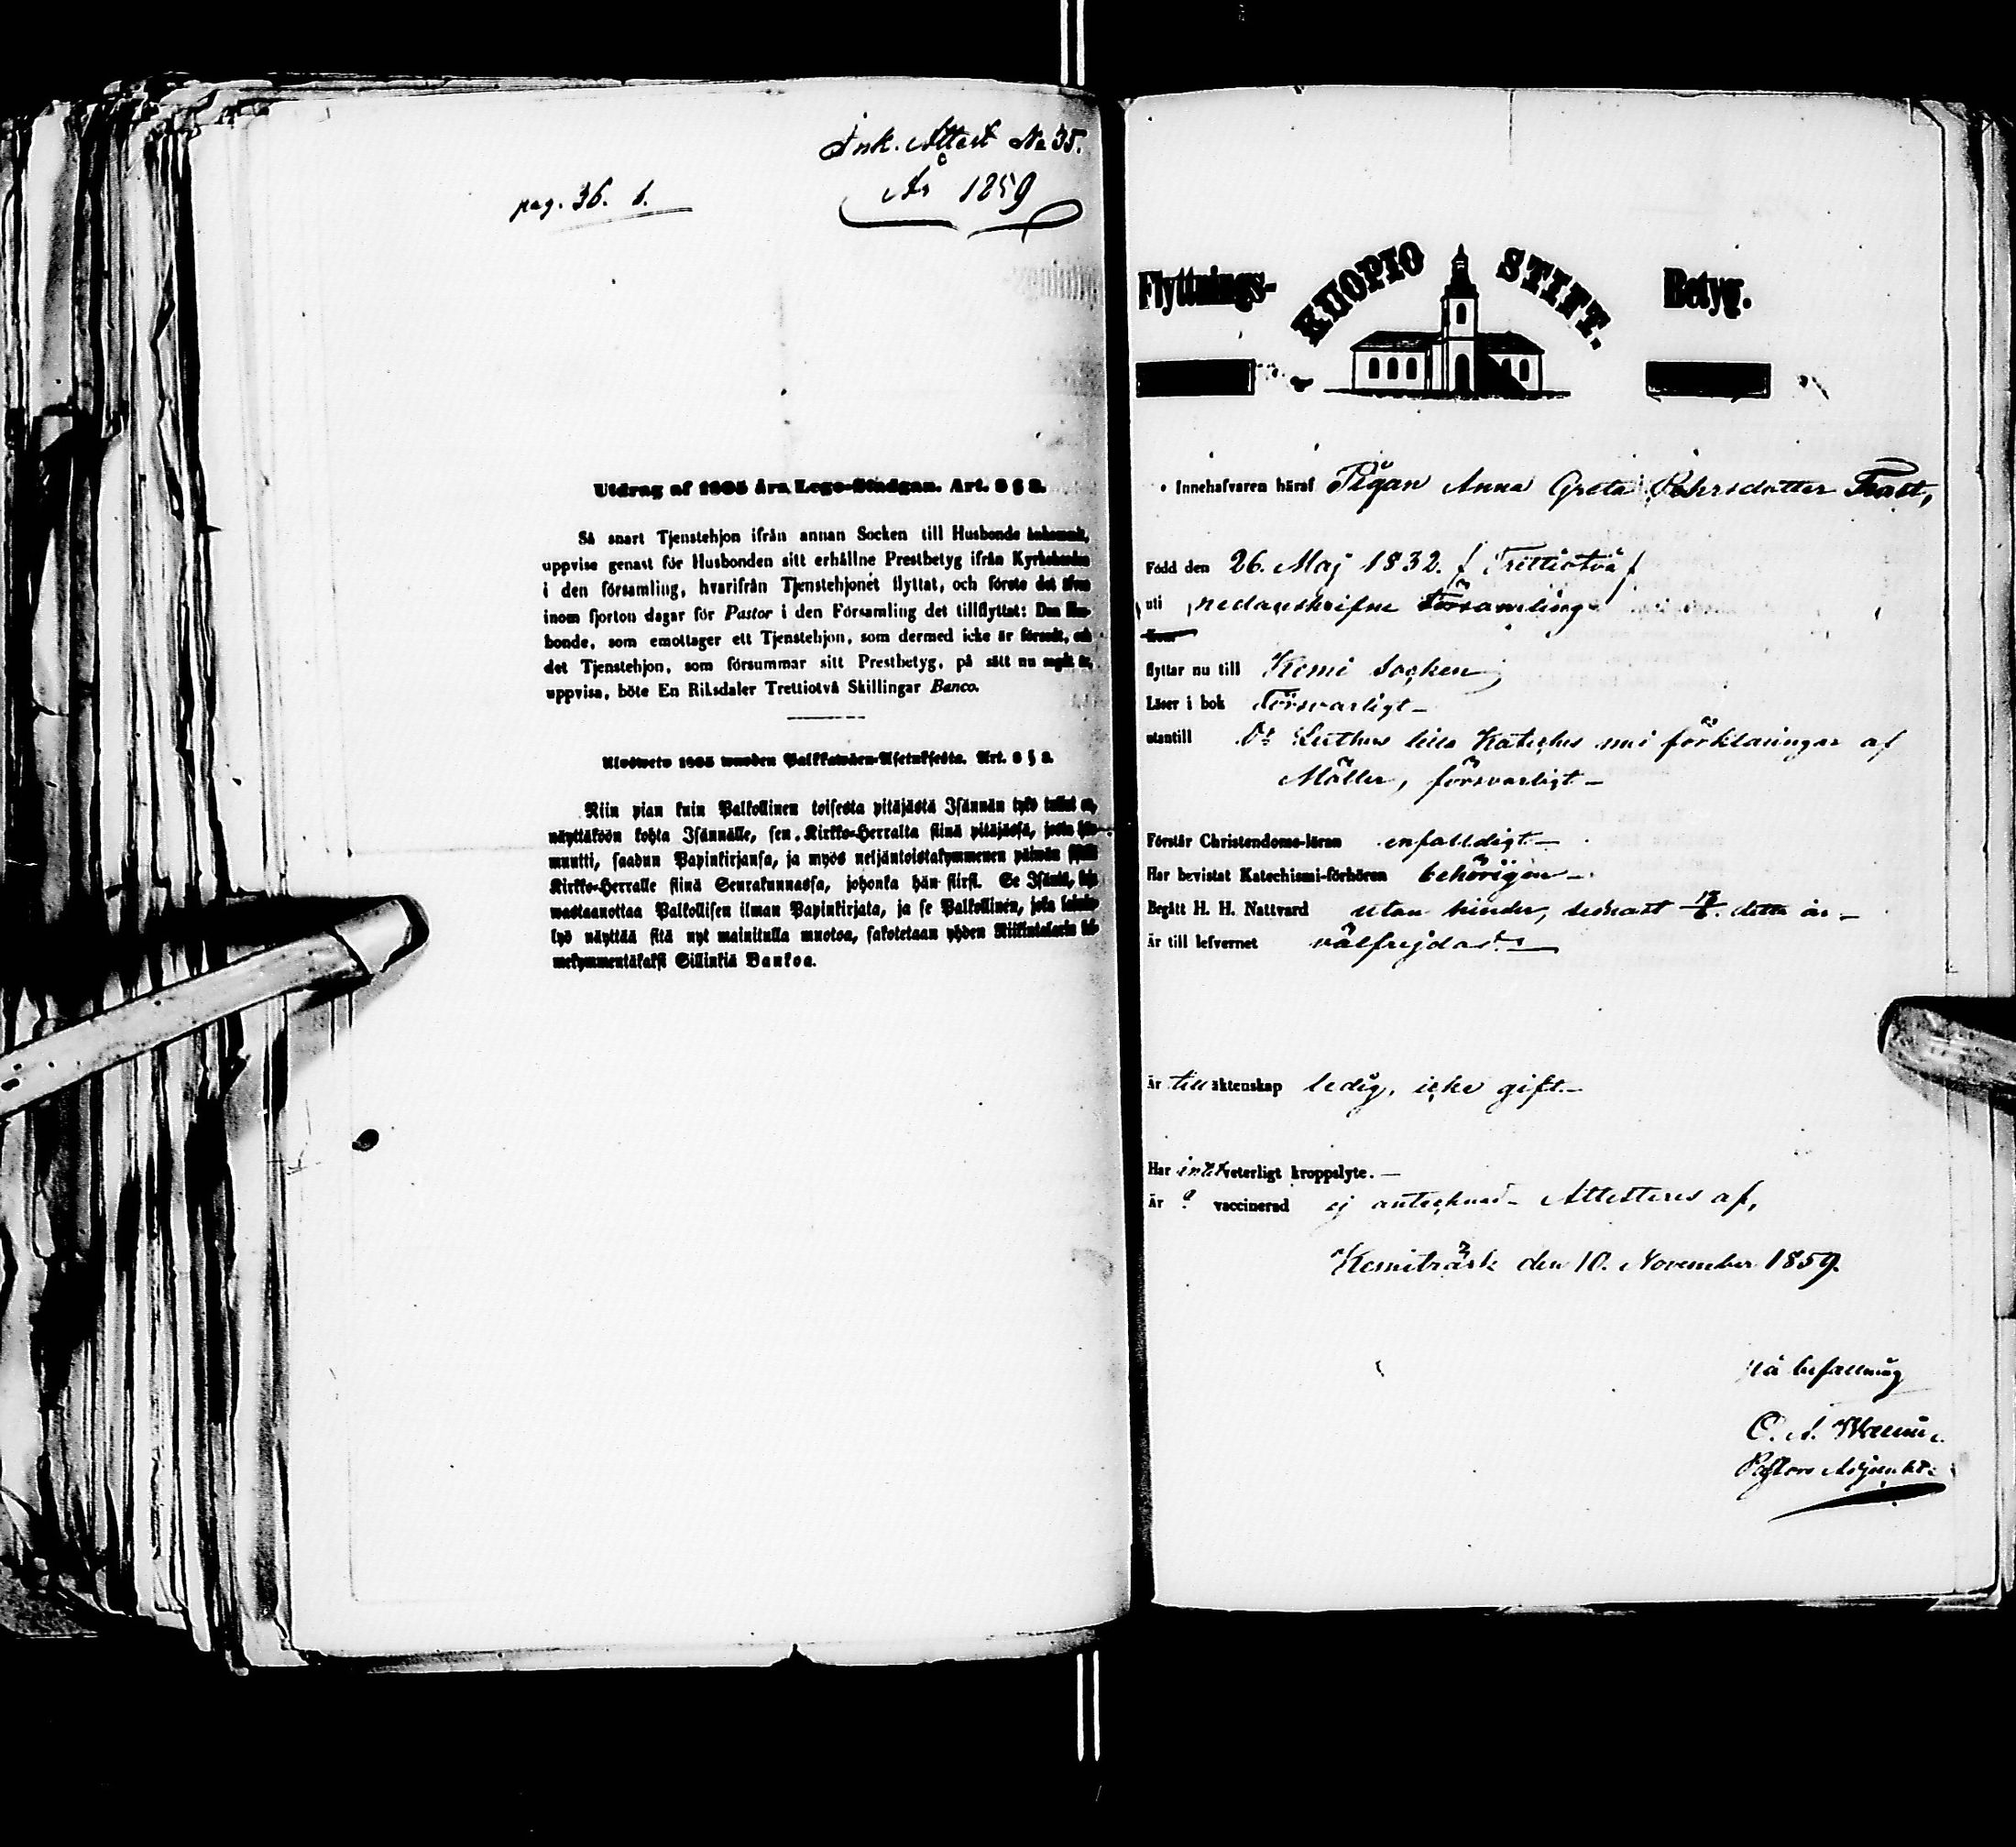 Ink. Attest No 35.
År 1859
pag. 36. b.
Utdrag af 1805 års Lego-Stadgan. Art. 8 § 2.
Så snart Tjenstehjon ifrån annan Socken till Husbonde ankommit,
uppvise genast för Husbonden sitt erhållne Prestbetyg ifrån Kyrkoherden
i den församling, hvarifrån Tjenstehjonet flyttat, och förete det äfven
inom fjorton dagar för Pastor i den Församling det tillflyttat: Den Hus-
bonde, som emottager ett Tjenstehjon, som dermed icke är försedt, och
det Tjenstehjon, som försummar sitt Prestbetyg, på sätt nu sagdt är,
uppvisa, böte En Riksdaler Trettiotvå Skillingar Banco.
Ulosweto 1805 wuoden Palkkawäen-Asetuksesta. Art. 8 § 2.
Niin pian kuin Palkollinen toisesta pitäjästä Isännän tykö tullut on,
näyttäköön kohta Isännälle, sen Kirkko-Herralta siinä pitäjässä, josta hän
muutti, saadun Papinkirjansa, ja myös neljäntoistakymmenen päiwän
Kirkko-Herralle siinä Seurakunnassa, johonka hän siirsi. Se Isäntä, joka
wastaanottaa Palkollisen ilman Papinkirjata, ja se Palkollinen, joka laimin-
lyö näyttää sitä nyt mainitulla muotoa, sakotetaan yhden Riikintalarin kol-
mekymmentäkaksi Sillinkiä Bankoa.
Flyttnings- KUOPIO STIFT. Betyg.
Innehafvaren häraf Pigan Anna Greta Pehrsdotter Trast,
Född den 26. Maj 1832. / Trettiotvå /
uti nedanskrifne Församling
Kom
flyttar nu till Kemi Socken,
Läser i bok Försvarligt –
utantill Dr Luthers lilla Kateches med förklaringar af
Möller, försvarligt –
Förstår Christendoms-läran enfaldigt –
Har bevistat Katechismi-förhören behörigen –
Begått H. H. Nattvard utan hinder, senast detta år –
Är till lefvernet välfrejdad. –
Är till äktenskap ledig, icke gift. –
Har intet veterligt kroppslyte. –
Är ? vaccinerad ej antecknad – Attesteras af,
Kemiträsk den 10. November 1859.
På befallning
C. A.
Pastors Adjunkt.